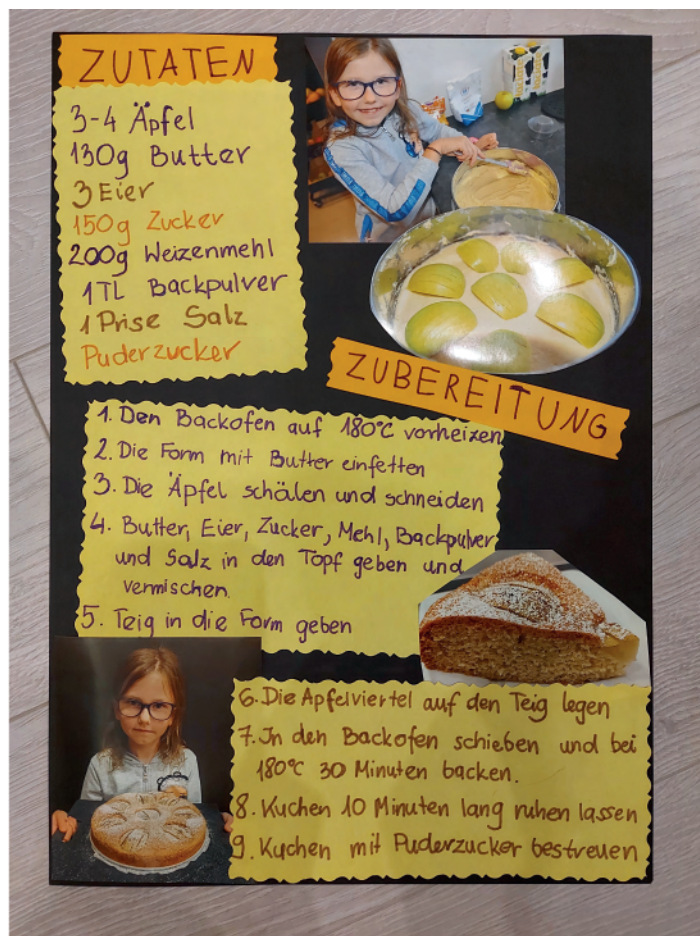 ZUTATEN
3-4 Äpfel
130g Butter
3 Eier
150g Zucker
200g Weizenmehl
1TL Backpulver
1 Prise Salz
Puderzucker
ZUBEREITUNG
1. Den Backofen auf 180°C vorheizen
2. Die Form mit Butter einfetten
3. Die Äpfel schälen und schneiden
4. Butter, Eier, Zucker, Mehl, Backpulver
und Salz in den Topf geben und
vermischen.
5. Teig in die Form geben
6. Die Apfelviertel auf den Teig legen
7. In den Backofen schieben und bei
180°C 30 Minuten backen.
8. Kuchen 10 Minuten lang ruhen lassen
9. Kuchen mit Puderzucker bestreuen